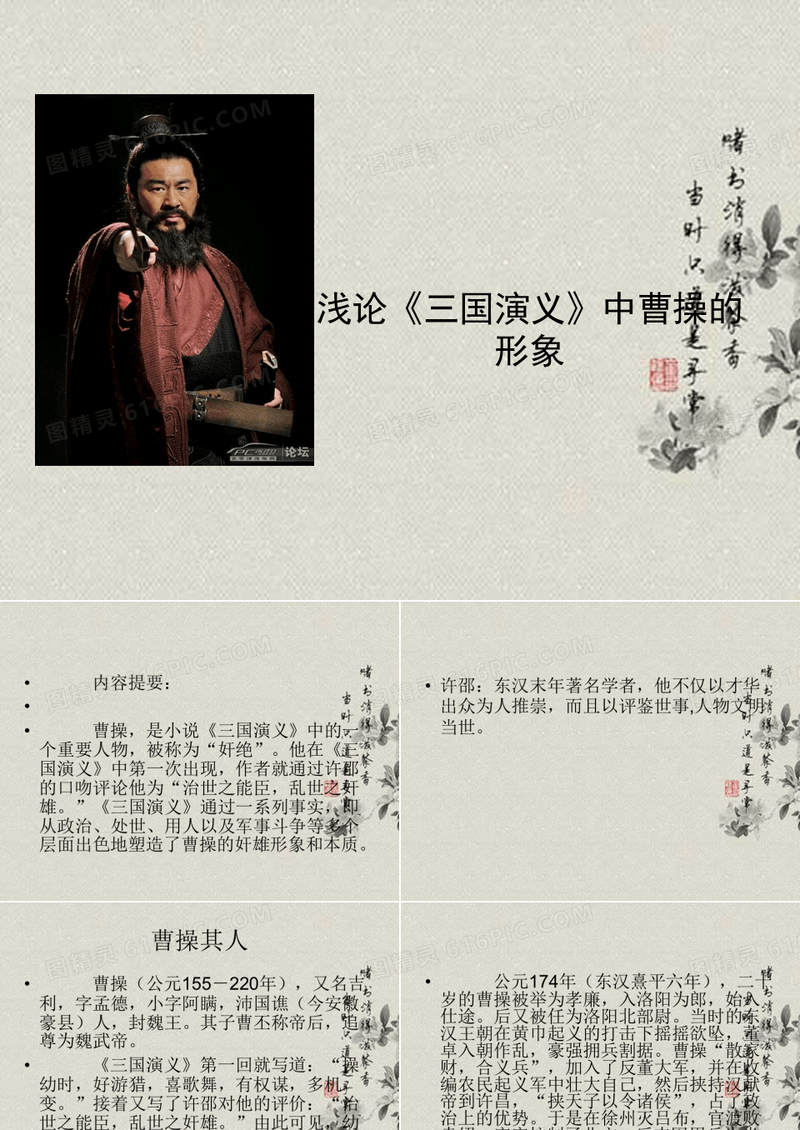 浅论《三国演义》中曹操的
形象
赌书消得泼茶香
当时只道是寻常
论坛
图精灵 616PIC.COM
• 内容提要：
•
• 曹操，是小说《三国演义》中的一
个重要人物，被称为“奸绝”。他在《三
国演义》中第一次出现，作者就通过许邵
的口吻评论他为“治世之能臣，乱世之奸
雄。”《三国演义》通过一系列事实，即
从政治、处世、用人以及军事斗争等多个
层面出色地塑造了曹操的奸雄形象和本质。
• 许邵：东汉末年著名学者，他不仅以才华
出众为人推崇，而且以评鉴世事,人物文明
当世。
曹操其人
• 曹操（公元155－220年），又名吉
利，字孟德，小字阿瞒，沛国谯（今安徽
豪县）人，封魏王。其子曹丕称帝后，追
尊为魏武帝。
• 《三国演义》第一回就写道：“操
幼时，好游猎，喜歌舞，有权谋，多机
变。”接着又写了许邵对他的评价：“治
世之能臣，乱世之奸雄。”由此可见，幼
• 公元174年（东汉熹平六年），二十
岁的曹操被举为孝廉，入洛阳为郎，始入
仕途。后又被任为洛阳北部尉。当时的东
汉王朝在黄巾起义的打击下摇摇欲坠，董
卓入朝作乱，豪强拥兵割据。曹操“散家
财，合义兵”，加入了反董大军，并在收
编农民起义军中壮大自己，然后挟持汉献
帝到许昌，“挟天子以令诸侯”，占了政
治上的优势。于是在徐州灭吕布，官渡败